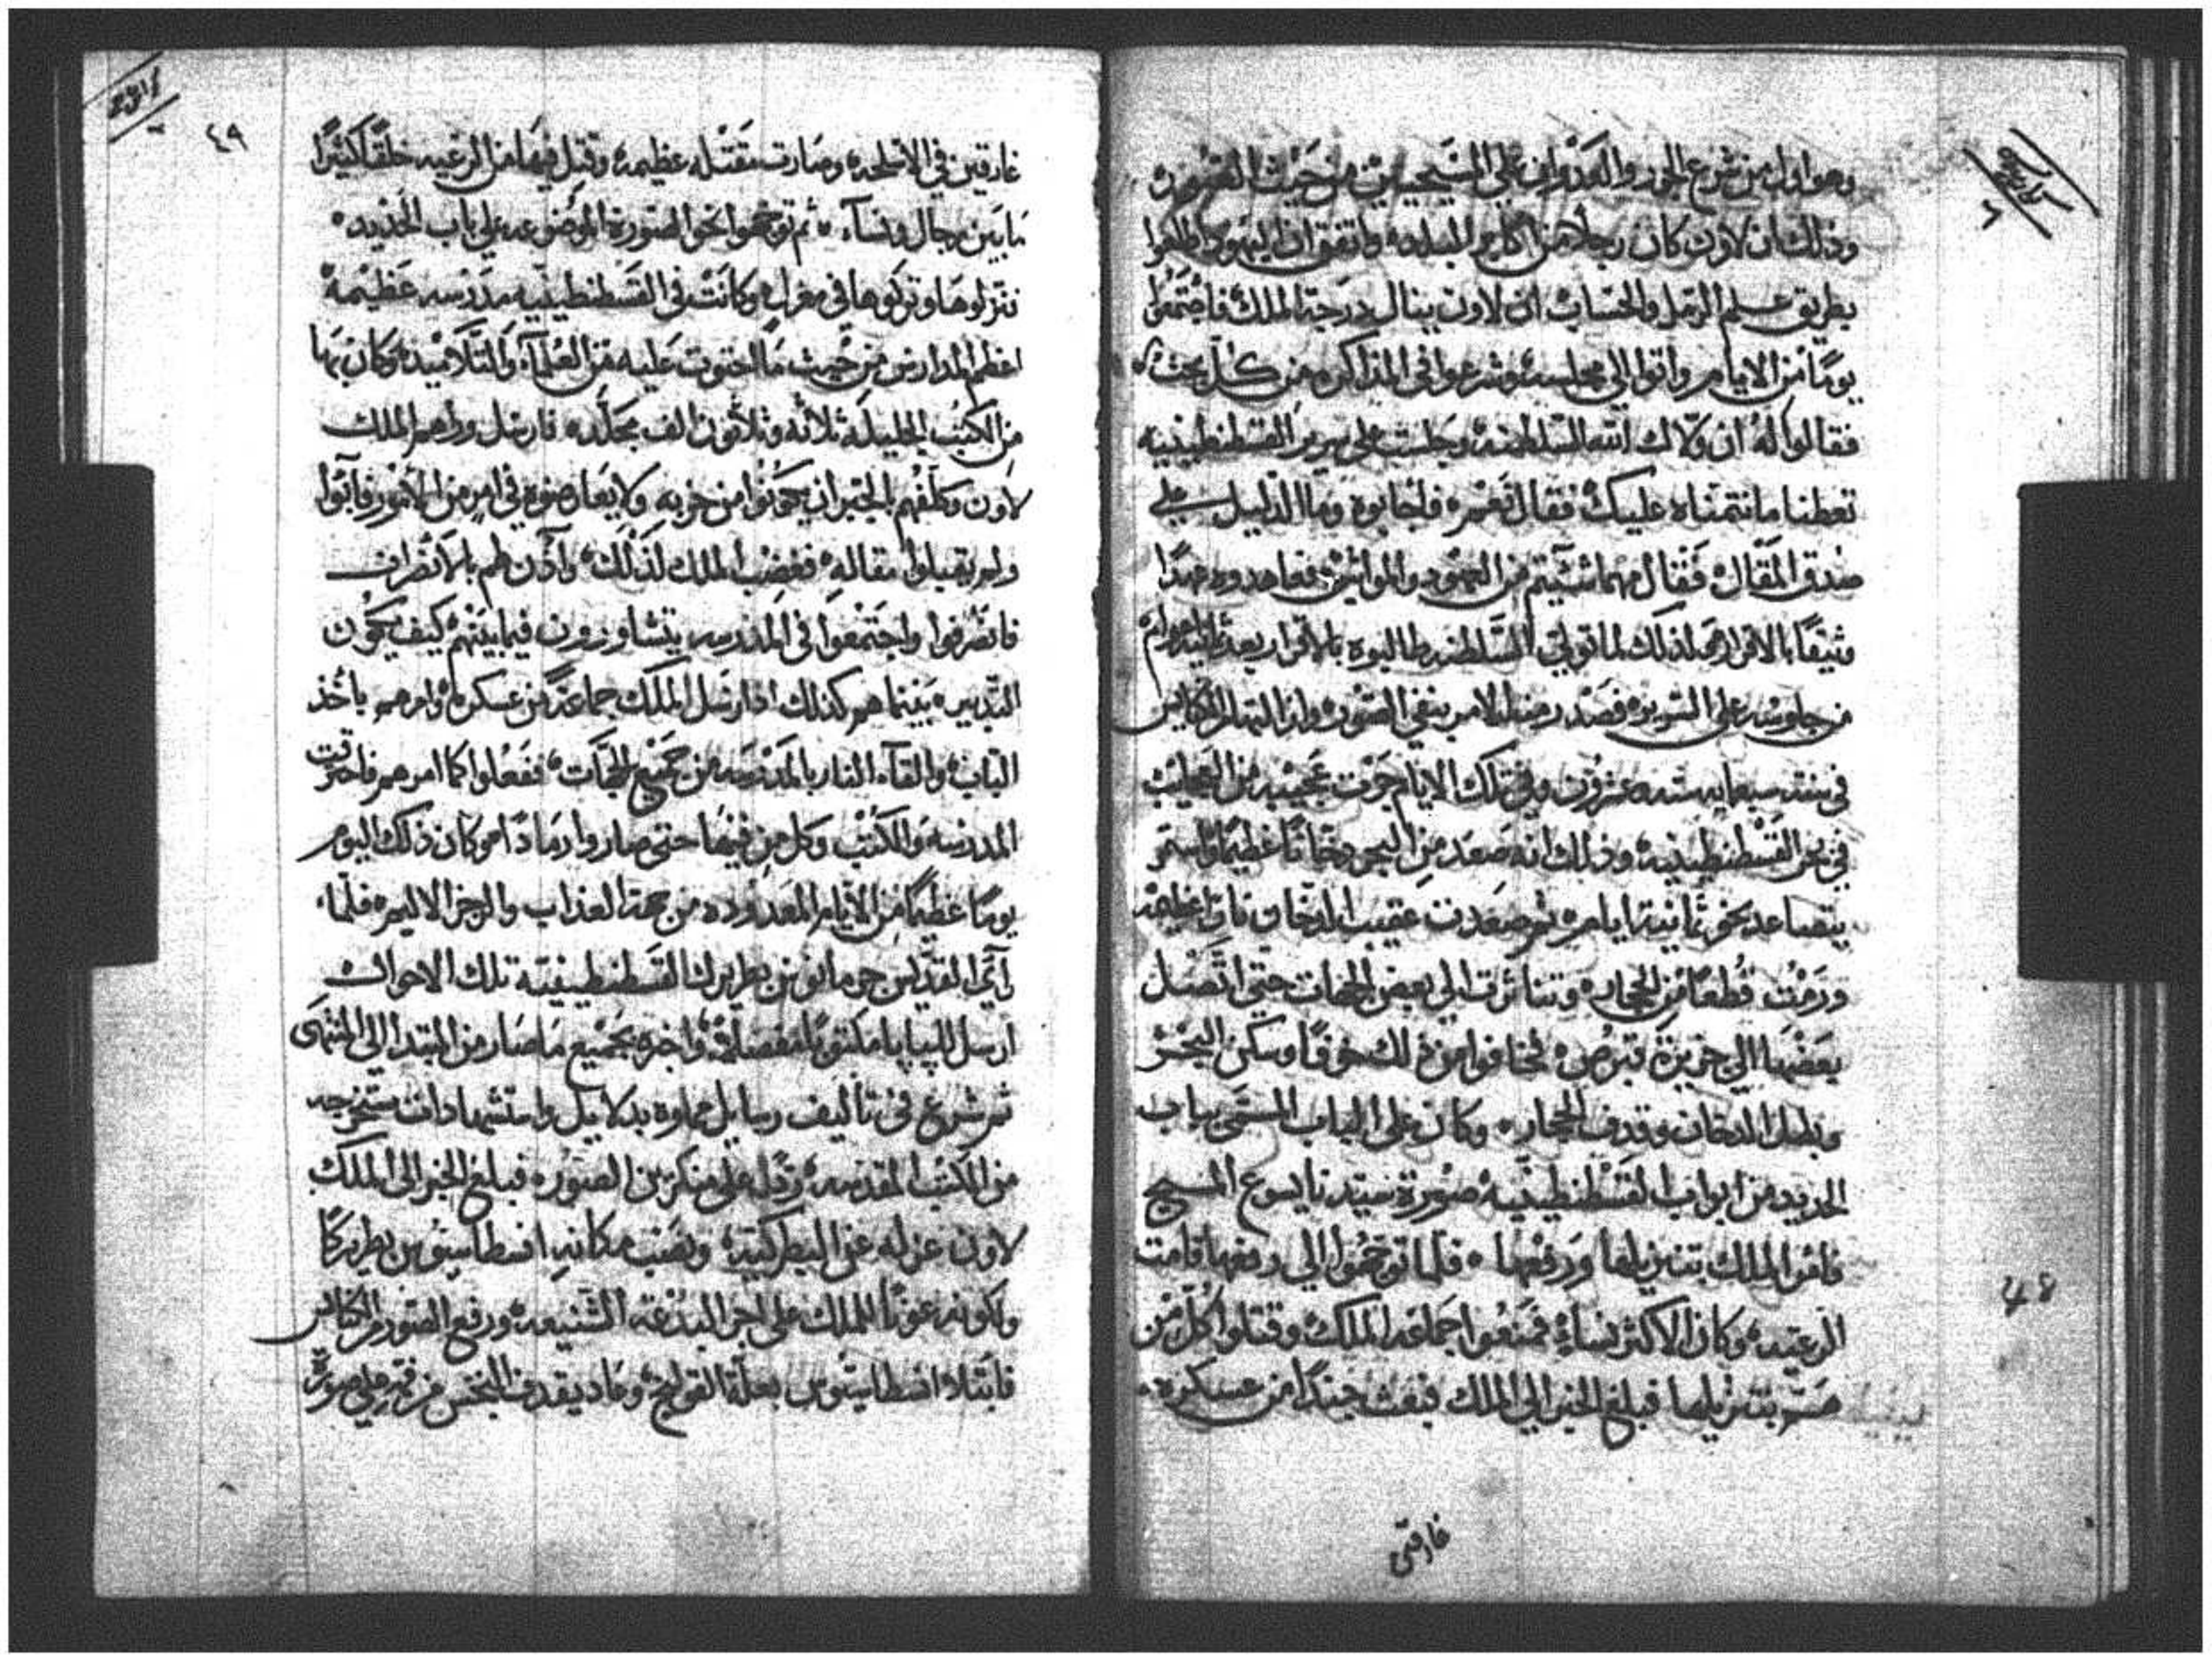 وهو اول من شرع الجور والعدوان على المسيحيين من حيث الصور
وذلك ان لاون كان رجلاً من اكابر البلده واتفق ان اليهود اطلعوا
بطريق علم الرمل والحساب ان لاون ينال درجة الملك فاجتمعوا
يوماً من الايام واتوا الى مجلسه وشرعوا في المذاكره من كل بحث
فقالوا له ان ولاك الله السلطنه وجلست على سرير القسطنطينيه
تعطنا ما نتمناه عليك فقال نعم فاجابوه وما الدليل على
صدق المقال فقال مهما شئتم من العهود والمواثيق فعاهدوه عهداً
وثيقاً بالاقرار لذلك لما تولى السلطنه طالبوه بالاقرار بعد
من جلوسه على السرير فصدر منه الامر بنفي الصور وازالتها من الكنايس
في سنة سبعمايه سته وعشرون وفي تلك الايام جرت عجيبه من العجايب
في بحر القسطنطينيه وذلك انه صعد من البحر دخاناً عظيماً واستمر
يتصاعد نحو ثمانية ايام ثم صعدت عقيب الدخان نار عظيمه
ورمت قطعاً من الحجاره وتناثرت الى بعض الجهات حتى اتصل
بعضها الى جزيرة قبرص فخافوا من ذلك خوفاً وسكن البحر
وبطل الدخان وقذف الحجار وكان على الباب المسمى بباب
الحديد من ابواب القسطنطينيه صورة سيدنا يسوع المسيح
فامر الملك بتنزيلها ورفعها فلما توجهوا الى رفعها قامت
الرعيه وكان الاكثر نساء فمنعوا جماعة الملك وقتلوا كل من
هم بتنزيلها فبلغ الخبر الى الملك فبعث جنداً من عسكره
غارقين
٤٨
٤٩
غارقين في الاسلحه وصارت مقتله عظيمه وقتل فيها من الرعيه خلقاً كثيراً
ما بين رجال ونساء ثم توجهوا نحو الصورة الموضوعه على باب الحديد
نزلوها وتركوها في معزل وكانت في القسطنطينيه مدرسه عظيمة
اعظم المدارس من حيث ما احتوت عليه من العلماء والتلاميذ وكان بها
من الكتب الجليلة ثلاثه وثلاثون الف مجلده فارسل وراهم الملك
لاون وكلفهم بالجبر ان يكونوا من حزبه ولا يعارضوه في امر من الامور فابوا
ولم يقبلوا مقاله فغضب الملك لذلك واذن لهم بالانصراف
فانصرفوا واجتمعوا في المدرسه يتشاورون فيما بينهم كيف يكون
التدبير بينما هم كذلك اذ ارسل الملك جماعة من عسكره وامرهم باخذ
الباب والقاء النار بالمدرسه من جميع الجهات ففعلوا كما امرهم فاحترقت
المدرسه والكتب وكل من فيها حتى صاروا رماداً وكان ذلك اليوم
يوماً عظيماً من الايام المعدوده من جهة العذاب والرجز الاليم فلما
راى القديس جرمانوس بطريرك القسطنطينيه تلك الاحوال
ارسل للبابا مكتوباً مفصلاً واخبره بجميع ما صار من المبتدا الى المنتهى
ثم شرع في تاليف رسايل مملوه بدلايل واستشهادات مستخرجه
من الكتب المقدسه رداً على منكرين الصور فبلغ الخبر الى الملك
لاون عزله عن البطركيه ونصب مكانه انسطاسيوس بطريركاً
ولكونه عوناً للملك على اجرا البدعة الشنيعه ورفع الصور من الكنايس
فابتلا انسطاسيوس بعلة القولنج وعاد يقذف النجس من فمه